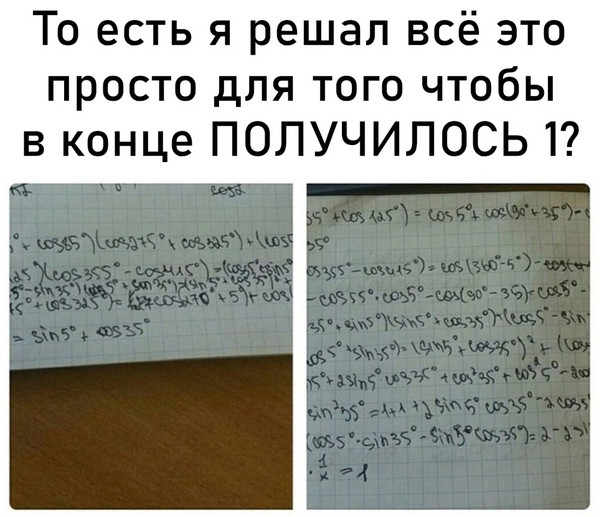 То есть я решал всё это
просто для того чтобы
в конце ПОЛУЧИЛОСЬ 1?
+ cos85°)(cos275° + cos325°) + (cos5
)(cos355° - cos415°) = (cos5° sin5°
+ cos325°) = cos270° + 5°) + cos(
= sin5° + cos35°
55° + cos125°) = cos5° + cos(90° + 35°) -
35°
os355° - cos415°) = cos(360° - 5°) - cos(4
- cos55° · cos5° - cos(90° - 35) = cos5° -
35° + sin5°)(sin5° + cos35°) + (cos5° - sin
os5° + sin35°) = (sin5° + cos35°)² + (cos
5° + 2sin5° cos35° + cos²35° + cos²5° - 2co
sin²35° = 1+1 + 2sin5° cos35° - 2cos5
(cos5° · sin35° - sin5° cos35°) = 2 - 2si
· 1/x = 1